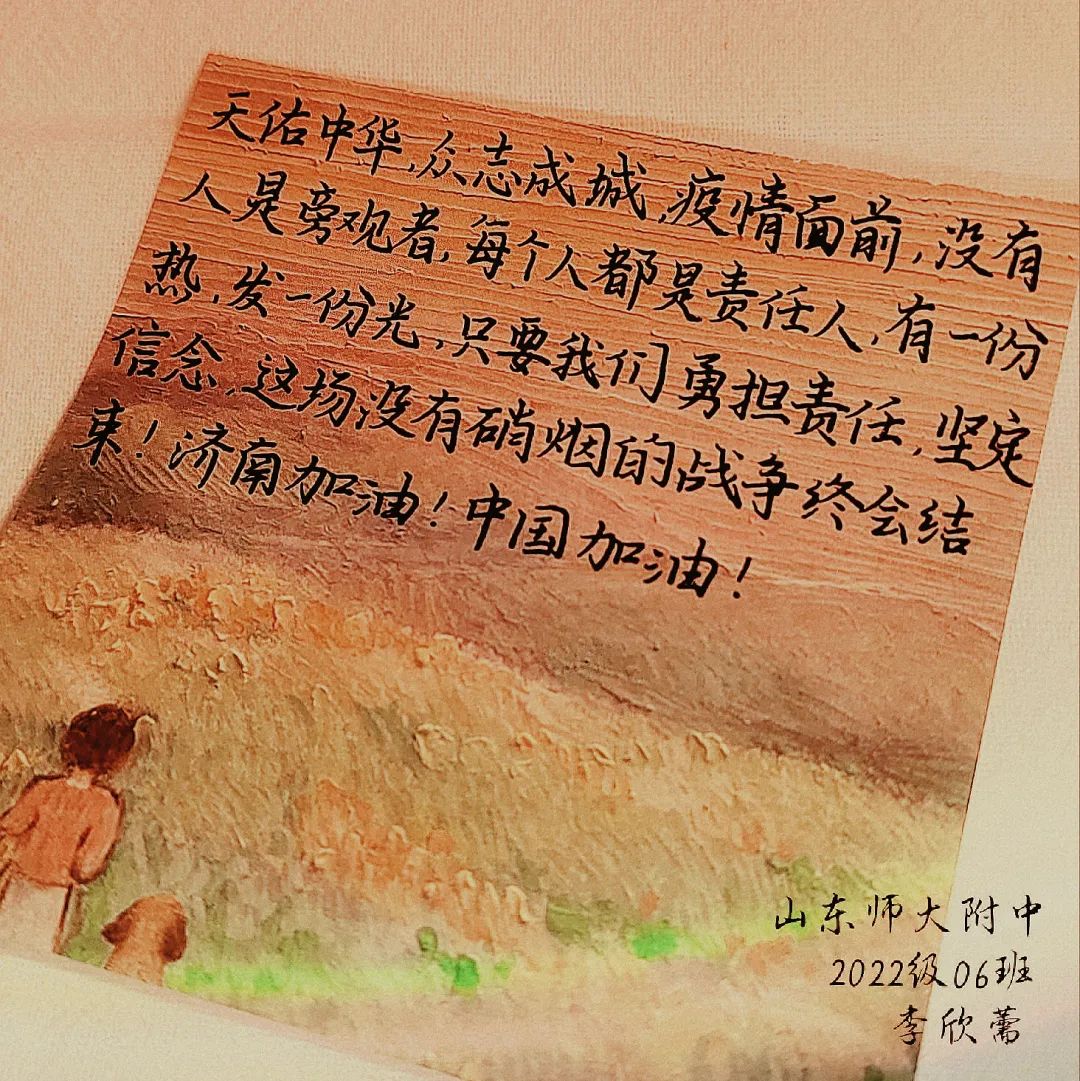 天佑中华,众志成城,疫情面前,没有
人是旁观者,每个人都是责任人,有一份
热,发一份光,只要我们勇担责任,坚定
信念,这场没有硝烟的战争终会结
束!济南加油!中国加油!
山东师大附中
2022级06班
李欣蕾